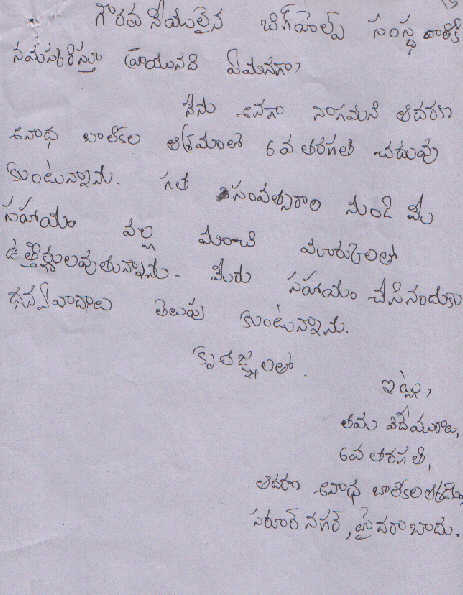 గౌరవనీయులైన బిగ్‌హెల్ప్ సంస్థ వారికి
నమస్కరిస్తూ వ్రాయునది ఏమనగా,
నేను అనగా ఆదరణ
అనాధ బాలికల ఆశ్రమంలో 6వ తరగతి చదువు
కుంటున్నాను. గత సంవత్సరాల నుండి మీ
సహాయం వల్ల మంచి మార్కులతో
ఉత్తీర్ణులవుతున్నాను. మీరు సహాయం చేసినందుకు
ధన్యవాదాలు తెలుపు కుంటున్నాను.
కృతజ్ఞలతో.
ఇట్లు,
తమ విధేయురాలు,
6వ తరగతి,
ఆదరణ అనాధ బాలికల ఆశ్రమం,
సరూర్ నగర్, హైదరాబాదు.